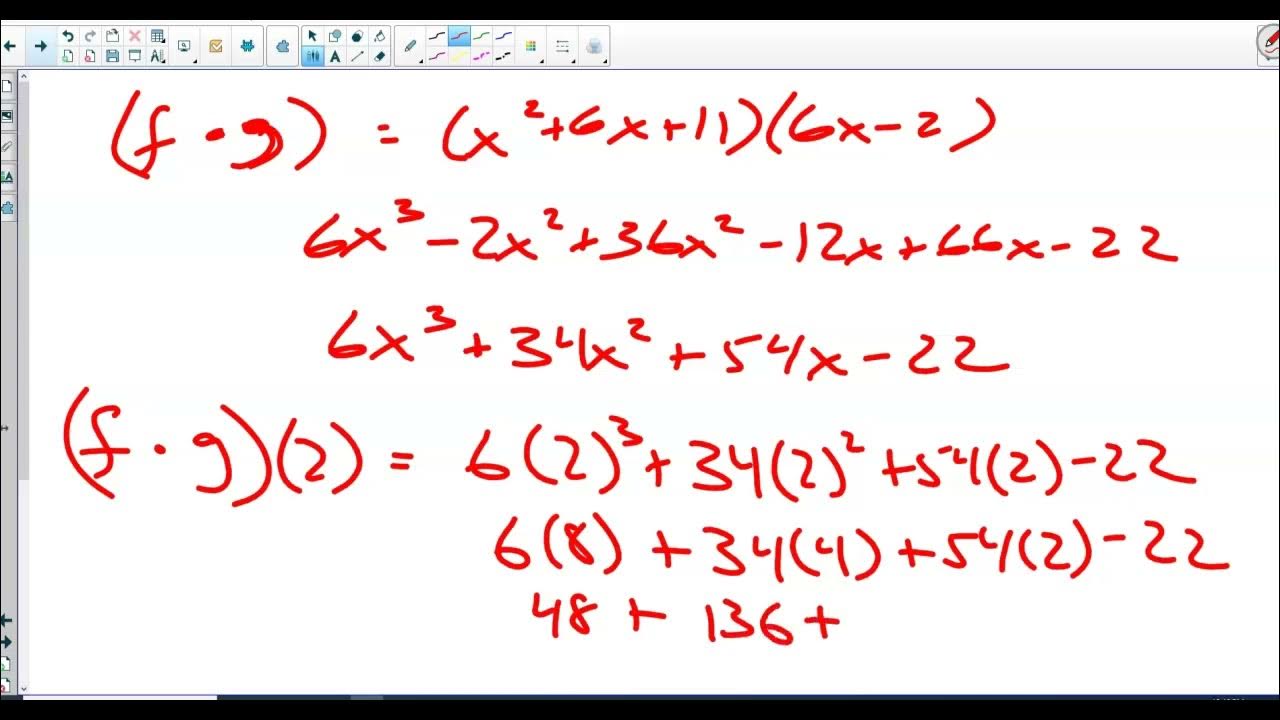 (f · g) = (x²+6x+11)(6x-2)
6x³ - 2x² + 36x² - 12x + 66x - 22
6x³ + 34x² + 54x - 22
(f · g)(2) = 6(2)³ + 34(2)² + 54(2) - 22
6(8) + 34(4) + 54(2) - 22
48 + 136 +